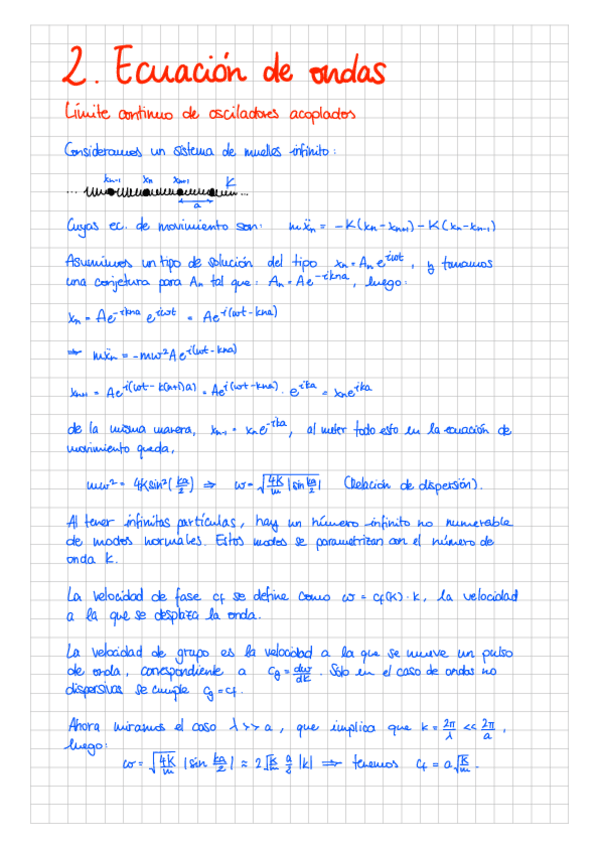 2. Ecuación de ondas
Límite continuo de osciladores acoplados
Consideramos un sistema de muelles infinito:
xₙ₋₁ xₙ xₙ₊₁ K
... ...
a
Cuyas ec. de movimiento son: mẍₙ = -K(xₙ - xₙ₊₁) - K(xₙ - xₙ₋₁)
Asumimos un tipo de solución del tipo xₙ = Aₙ e^{iωt}, y tomamos
una conjetura para Aₙ tal que: Aₙ = Ae^{-ikna}, luego:
xₙ = Ae^{-ikna} e^{iωt} = Ae^{i(ωt-kna)}
⇒ mẍₙ = -mω²Ae^{i(ωt-kna)}
xₙ₊₁ = Ae^{i(ωt-k(n+1)a)} = Ae^{i(ωt-kna)} · e^{ika} = xₙe^{ika}
de la misma manera, xₙ₋₁ = xₙe^{-ika}, al meter todo esto en la ecuación de
movimiento queda,
mω² = 4K sin²(ka/2) ⇒ ω = √(4K/m) |sin ka/2| (Relación de dispersión).
Al tener infinitas partículas, hay un número infinito no numerable
de modos normales. Estos modos se parametrizan con el número de
onda k.
La velocidad de fase cf se define como ω = cf(k)·k, la velocidad
a la que se desplaza la onda.
La velocidad de grupo es la velocidad a la que se mueve un pulso
de onda, correspondiente a cg = dω/dk. Sólo en el caso de ondas no
dispersivas se cumple cg = cf.
Ahora miramos el caso λ >> a, que implica que k = 2π/λ << 2π/a,
luego:
ω = √(4K/m) |sin ka/2| ≈ 2√(K/m) a/2 |k| ⇒ tenemos cf = a√(K/m).